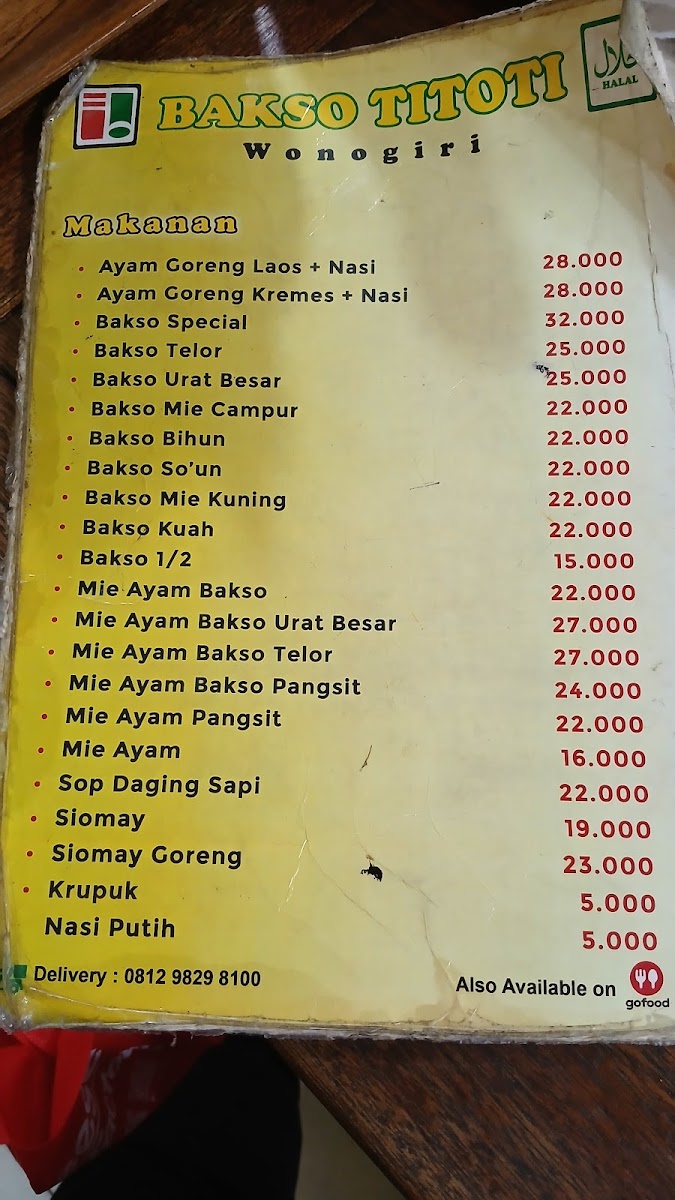 BAKSO TITOTI
حلال
HALAL
Wonogiri
Makanan
• Ayam Goreng Laos + Nasi 28.000
• Ayam Goreng Kremes + Nasi 28.000
• Bakso Special 32.000
• Bakso Telor 25.000
• Bakso Urat Besar 25.000
• Bakso Mie Campur 22.000
• Bakso Bihun 22.000
• Bakso So'un 22.000
• Bakso Mie Kuning 22.000
• Bakso Kuah 22.000
• Bakso 1/2 15.000
• Mie Ayam Bakso 22.000
• Mie Ayam Bakso Urat Besar 27.000
• Mie Ayam Bakso Telor 27.000
• Mie Ayam Bakso Pangsit 24.000
• Mie Ayam Pangsit 22.000
• Mie Ayam 16.000
• Sop Daging Sapi 22.000
• Siomay 19.000
• Siomay Goreng 23.000
• Krupuk 5.000
Nasi Putih 5.000
Delivery : 0812 9829 8100
Also Available on gofood